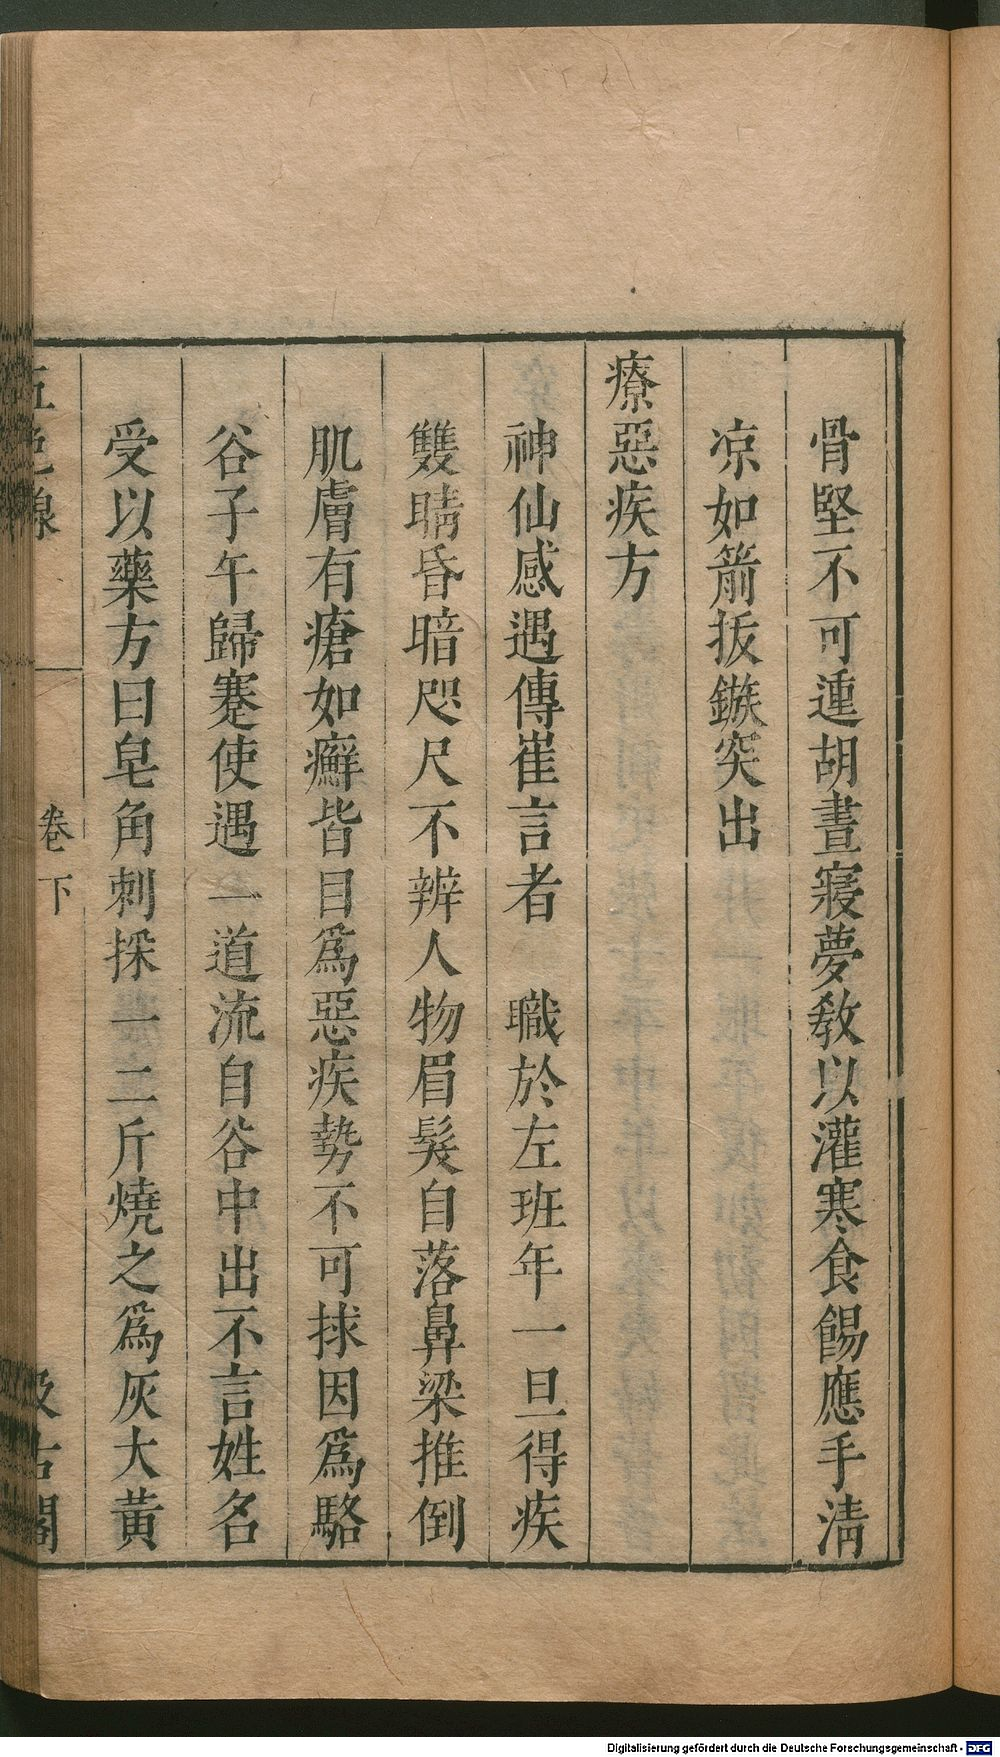 骨堅不可連胡晝寢夢教以灌寒食餳應手淸
凉如箭拔鏃突出
療惡疾方
神仙感遇傳崔言者 職於左班年一旦得疾
雙睛昏暗咫尺不辨人物眉髮自落鼻梁推倒
肌膚有瘡如癬皆目爲惡疾勢不可捄因爲駱
谷子午歸蹇使遇一道流自谷中出不言姓名
受以藥方曰皂角刺採一二斤燒之爲灰大黃
五色線 卷下 汲古閣
Digitalisierung gefördert durch die Deutsche Forschungsgemeinschaft - DFG